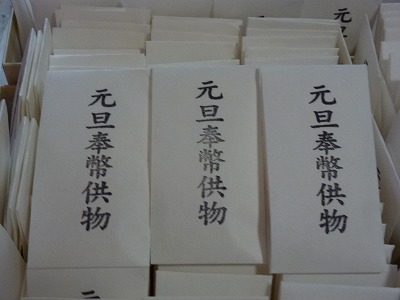 元旦奉幣供物
元旦奉幣供物
元旦奉幣供物